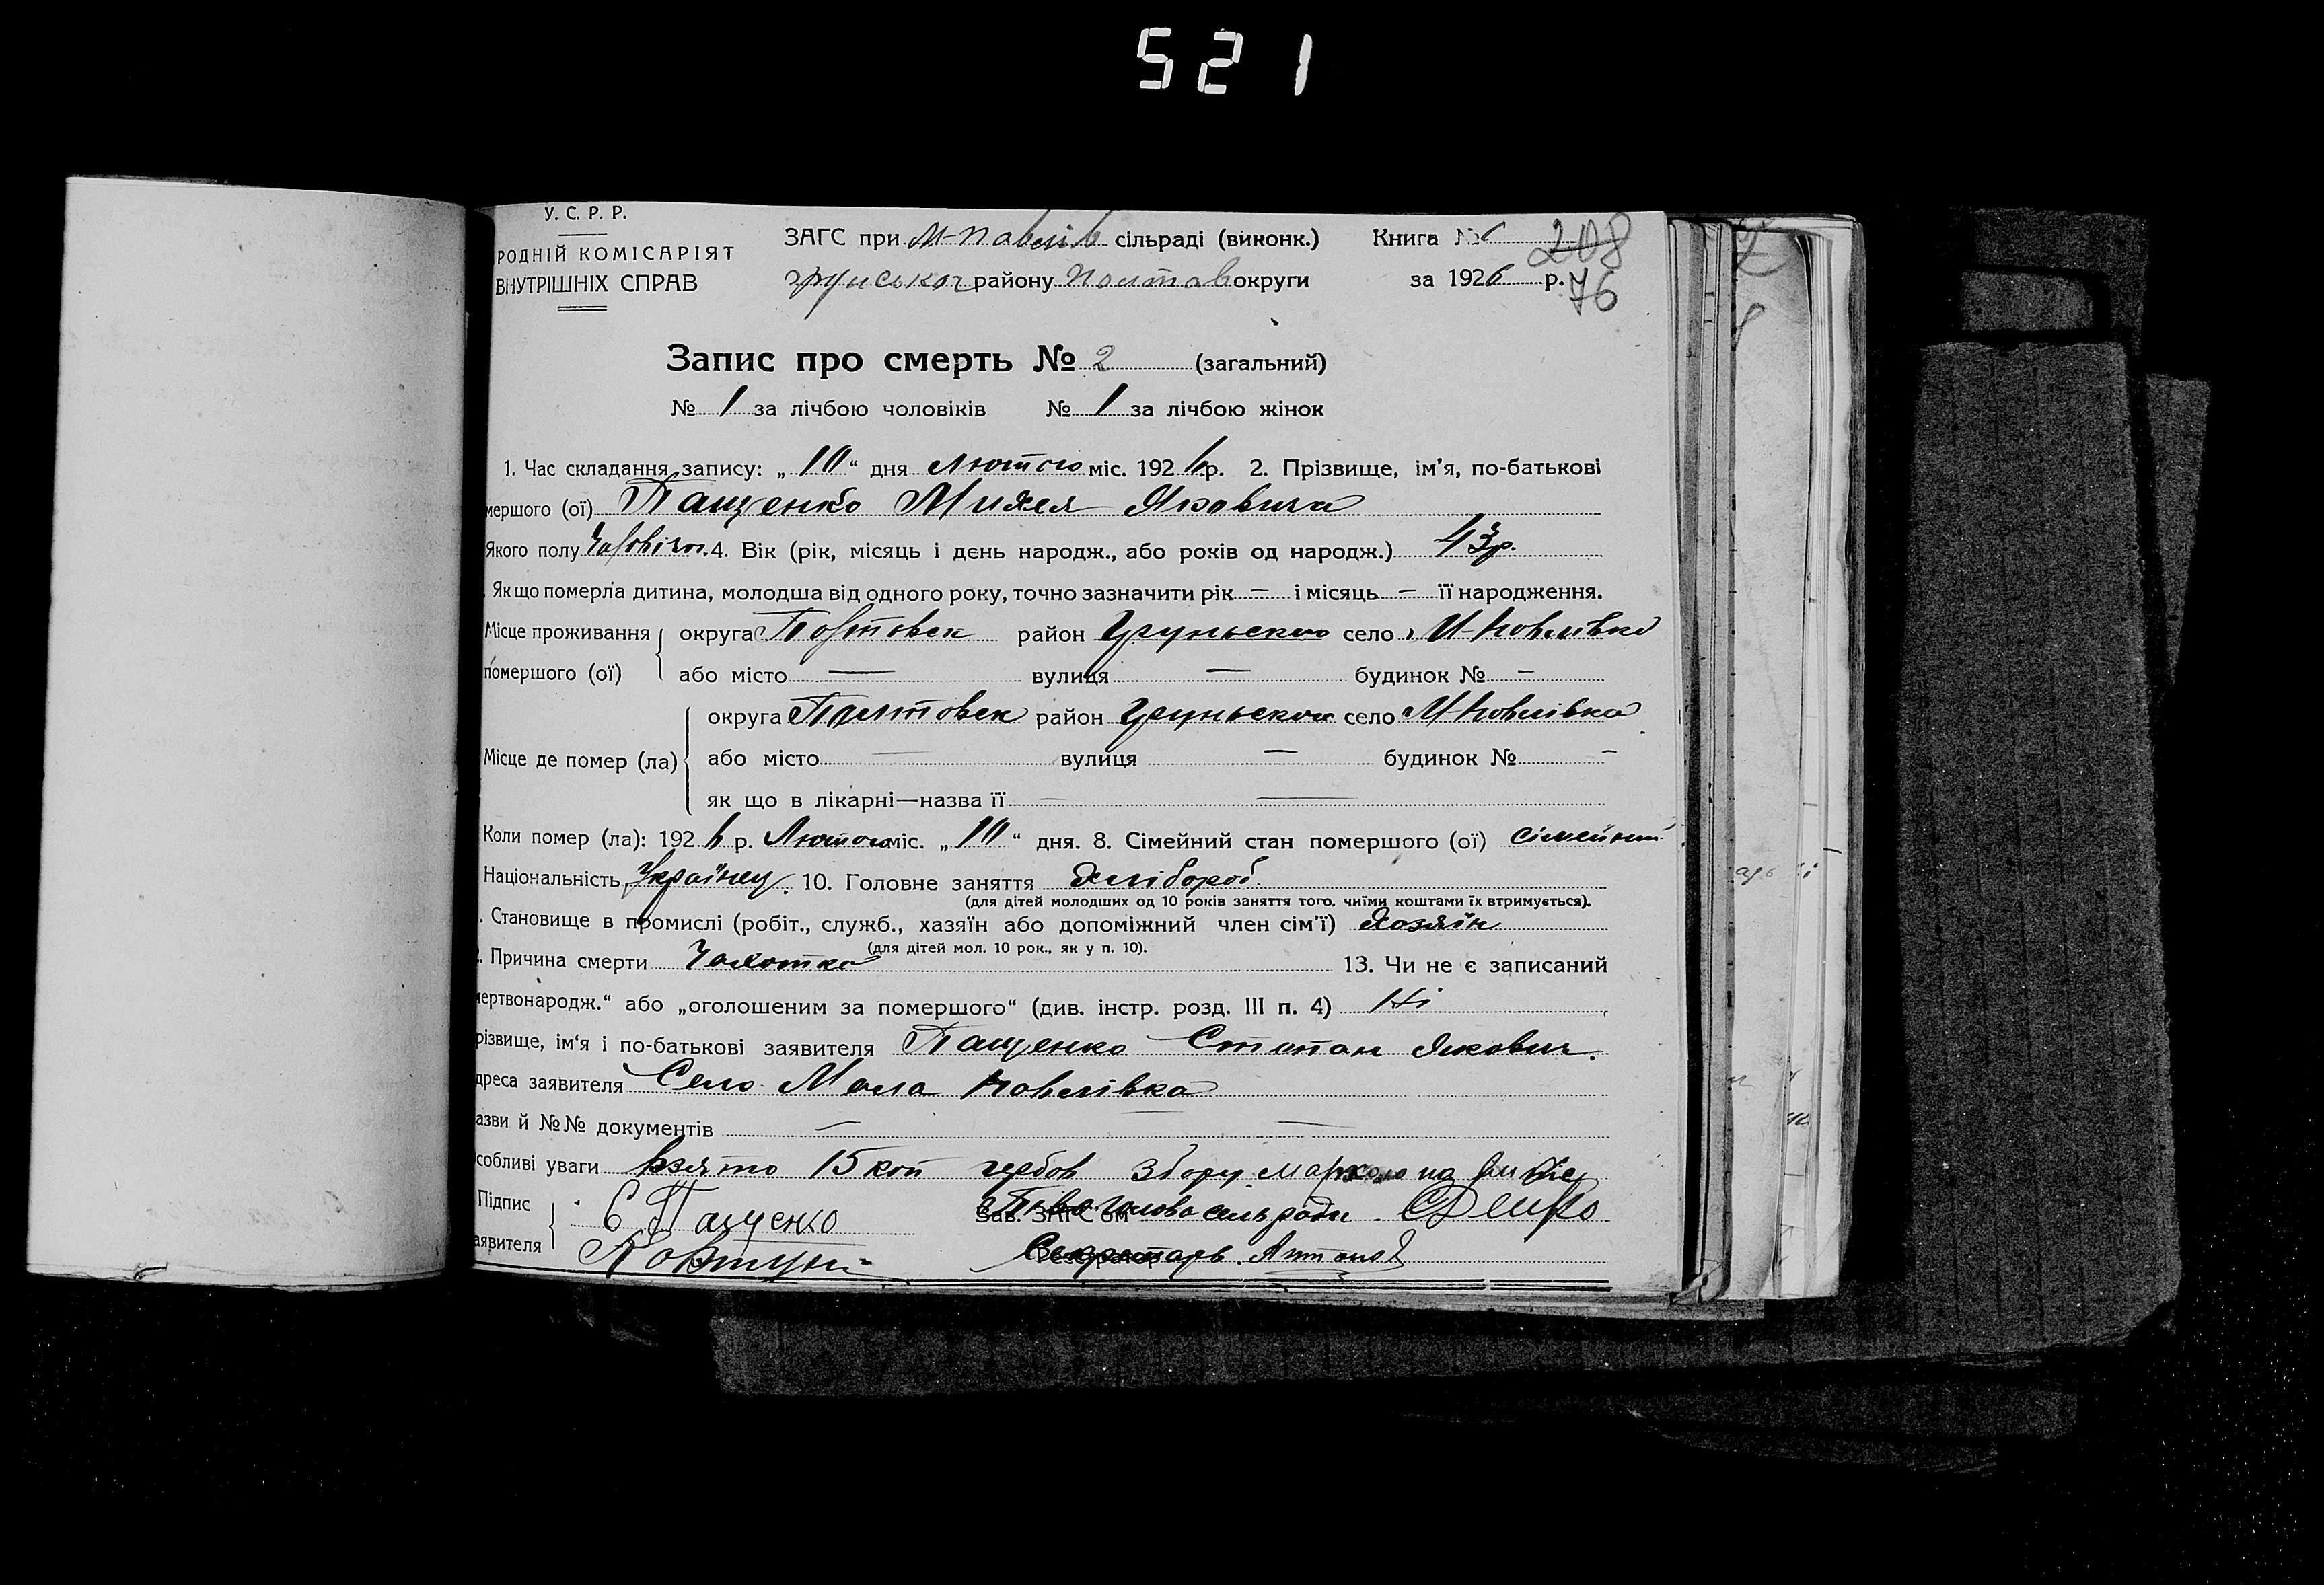 521
У. С. Р. Р.
РОДНІЙ КОМІСАРІЯТ
ВНУТРІШНІХ СПРАВ
ЗАГС при М-Павлів сільраді (виконк.) Книга №
208
району Полтав округи за 1926 р.
76
Запис про смерть № 2 (загальний)
№ 1 за лічбою чоловіків № 1 за лічбою жінок
1. Час складання запису: „ 10 “ дня Лютого міс. 1926 р. 2. Прізвище, ім'я, по-батькові
мершого (ої) Пащенко Михея Яковича
Якого полу 4. Вік (рік, місяць і день народж., або років од народж.) 43р.
Як що померла дитина, молодша від одного року, точно зазначити рік — і місяць — її народження.
Місце проживання округа район село
помершого (ої) або місто — вулиця — будинок № —
округа район село М Повлівка
Місце де помер (ла) або місто — вулиця — будинок № —
як що в лікарні—назва її — —
Коли помер (ла): 1926 р. Лютого міс. „ 10 “ дня. 8. Сімейний стан помершого (ої) сімейний
Національність Українец. 10. Головне заняття Хлібороб.
(для дітей молодших од 10 років заняття того, чиїми коштами їх втримується).
. Становище в промислі (робіт., служб., хазяїн або допоміжний член сім'ї) Хозяїн
(для дітей мол. 10 рок., як у п. 10).
. Причина смерти Чахотка 13. Чи не є записаний
мертвонародж.“ або „оголошеним за помершого“ (див. інстр. розд. III п. 4) Ні
різвище, ім'я і по-батькові заявителя Пащенко Степан Якович.
дреса заявителя Село Мала Повлівка
азви й №№ документів — —
собливі уваги взято 15 коп гербов збору маркою на
Підпис Є Пащенко Зав. ЗАГС'ом голова сельради
аявителя Ковтун Секретарь.